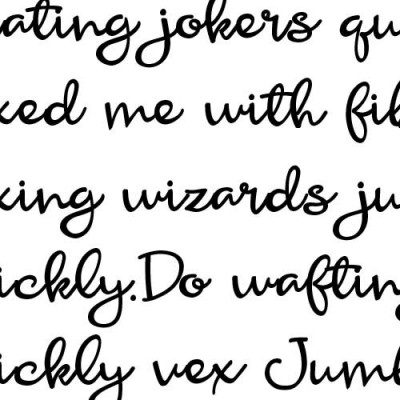 ating jokers qu
xed me with fib
xing wizards ju
ickly.Do wafting
ickly vex Jumb